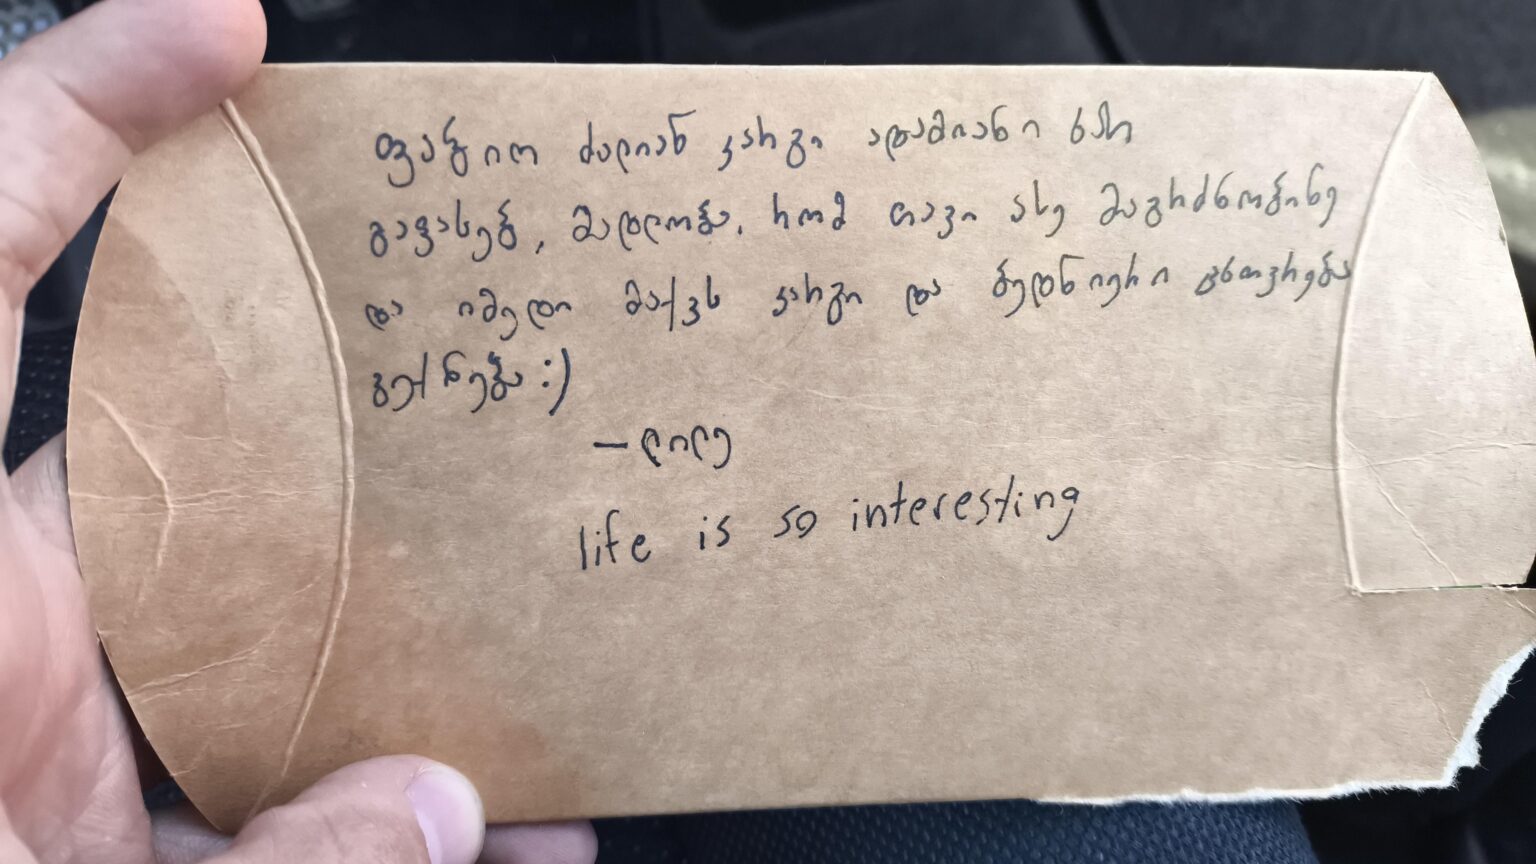 ფაბიო ძალიან კარგი ადამიანი ხარ
გაფასებ, მადლობა, რომ თავი ასე მაგრძნობინე
და იმედი მაქვს კარგი და ბედნიერი ცხოვრება
გექნება :)
— ლილე
life is so interesting